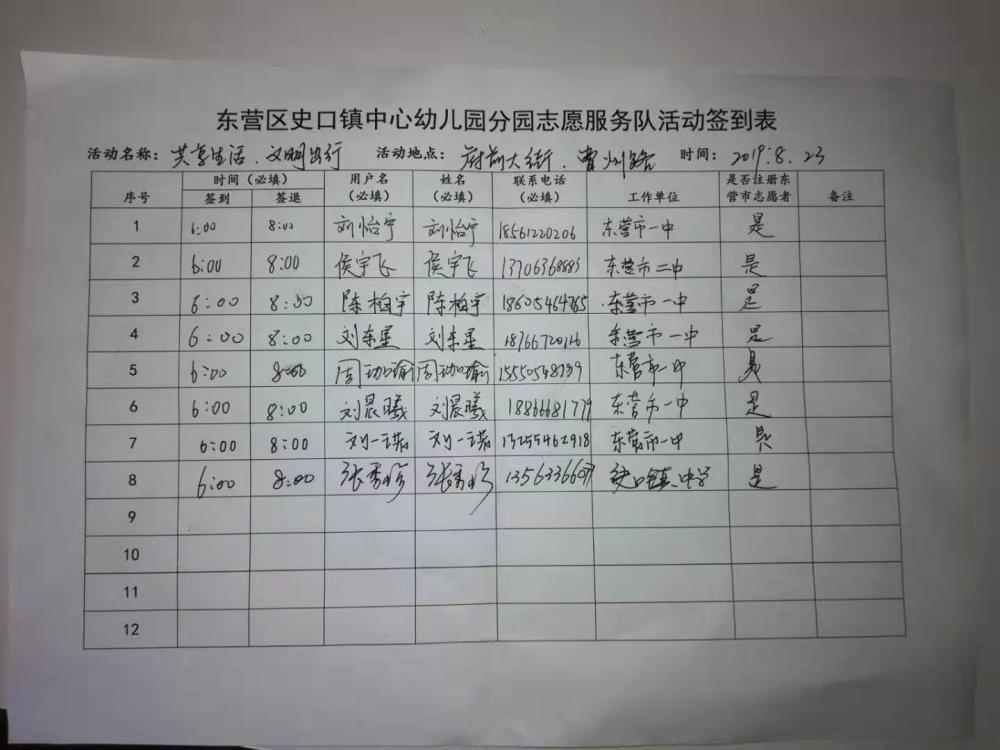 东营区史口镇中心幼儿园分园志愿服务队活动签到表
活动名称：共享生活、文明出行 活动地点：府前大街、曹州路 时间：2019.8.23
序号 时间（必填） 签到 签退 用户名（必填） 姓名（必填） 联系电话（必填） 工作单位 是否注册东营市志愿者 备注
1 6:00 8:00 刘怡宇 刘怡宇 18561220206 东营市一中 是
2 6:00 8:00 侯宇飞 侯宇飞 东营市二中 是
3 6:00 8:00 陈柏宇 陈柏宇 东营市一中 是
4 6:00 8:00 刘东星 刘东星 18766720126 东营市一中 是
5 6:00 8:00 周珈瑜 周珈瑜 东营市一中 是
6 6:00 8:00 刘晨曦 刘晨曦 18866681779 东营市一中 是
7 6:00 8:00 刘一诺 刘一诺 13255462918 东营市一中 是
8 6:00 8:00 张秀珍 张秀珍 史口镇中学 是
9
10
11
12